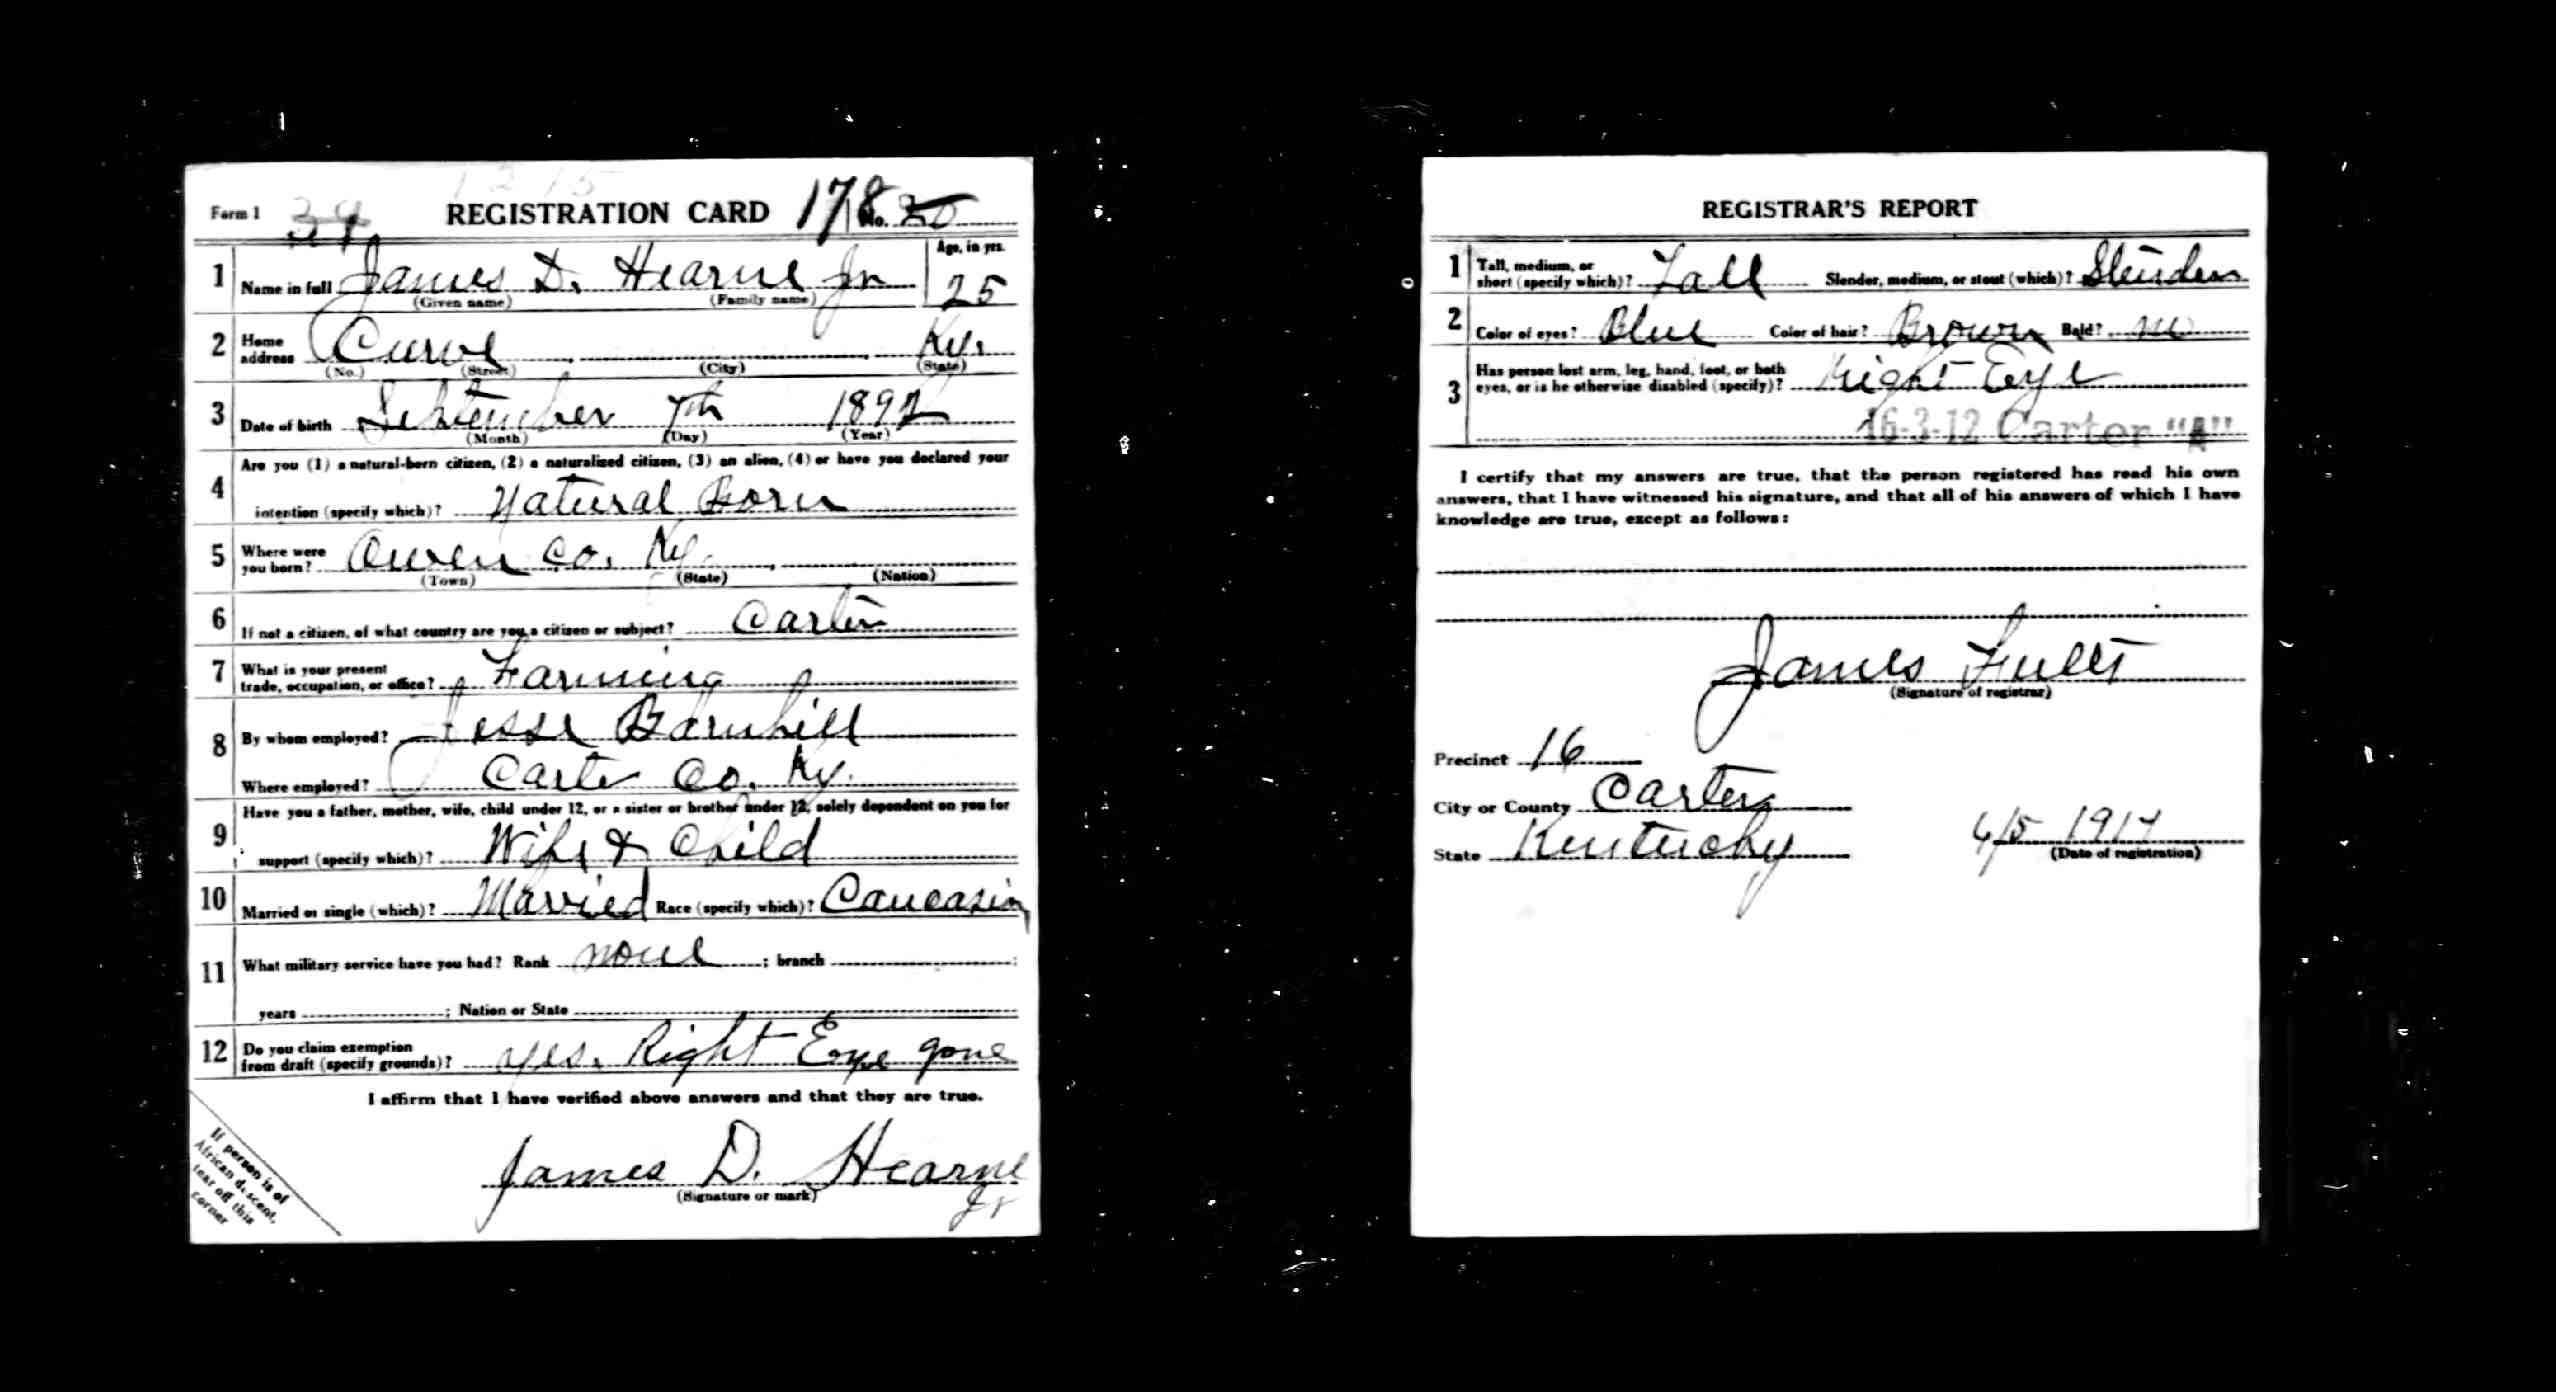 Form 1 REGISTRATION CARD 178 No. 20
1 Name in full James D. Hearne Jr Age, in yrs. 25
(Given name) (Family name)
2 Home address Curve Ky.
(No.) (Street) (City) (State)
3 Date of birth September 7th 1892
(Month) (Day) (Year)
4 Are you (1) a natural-born citizen, (2) a naturalized citizen, (3) an alien, (4) or have you declared your
intention (specify which)? Natural Born
5 Where were you born? Owen Co. Ky.
(Town) (State) (Nation)
6 If not a citizen, of what country are you a citizen or subject? Carter
7 What is your present
trade, occupation, or office? Farming
8 By whom employed? Jesse Barnhill
Where employed? Carter Co. Ky.
9 Have you a father, mother, wife, child under 12, or a sister or brother under 12, solely dependent on you for
support (specify which)? Wife & Child
10 Married or single (which)? Married Race (specify which)? Caucasian
11 What military service have you had? Rank none ; branch ;
years ; Nation or State
12 Do you claim exemption
from draft (specify grounds)? yes. Right Eye gone
I affirm that I have verified above answers and that they are true.
James D. Hearne
Jr
(Signature or mark)
If person is of
African descent,
tear off this
corner
REGISTRAR'S REPORT
1 Tall, medium, or
short (specify which)? Tall Slender, medium, or stout (which)? Slender
2 Color of eyes? Blue Color of hair? Brown Bald? no
3 Has person lost arm, leg, hand, foot, or both
eyes, or is he otherwise disabled (specify)? Right Eye
16-3-12 Carter "A"
I certify that my answers are true, that the person registered has read his own
answers, that I have witnessed his signature, and that all of his answers of which I have
knowledge are true, except as follows:
James
(Signature of registrar)
Precinct 16
City or County Carter
State Kentucky 6/5 1917
(Date of registration)